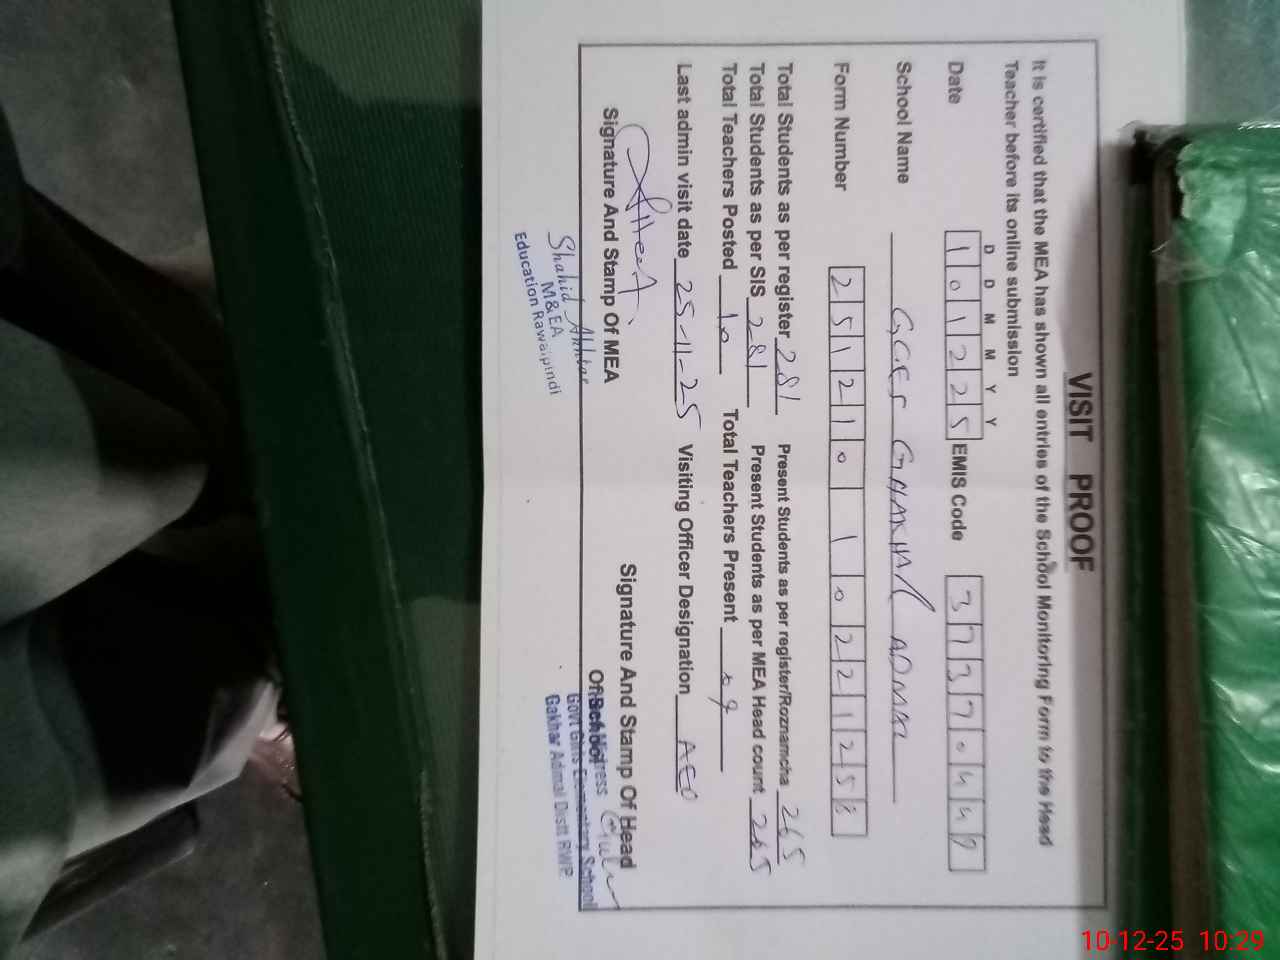 VISIT PROOF
It is certified that the MEA has shown all entries of the School Monitoring Form to the Head
Teacher before its online submission
D D M M Y Y
Date 1 0 1 2 2 5 EMIS Code 3 7 3 7 0 4 4 9
School Name GGES GHAKHAR ADMAL
Form Number 2 5 1 2 1 0 1 0 2 2 1 2 5
Total Students as per register 281 Present Students as per register/Roznamcha 265
Total Students as per SIS 281 Present Students as per MEA Head count 265
Total Teachers Posted 10 Total Teachers Present 9
Last admin visit date 25-11-25 Visiting Officer Designation AEO
Signature And Stamp Of MEA
Signature And Stamp Of Head
Of School
Shahid Akhtar
M&EA
Education Rawalpindi
Govt Girls Elementary School
Gakhar Admal Distt RWP
10-12-25 10:29